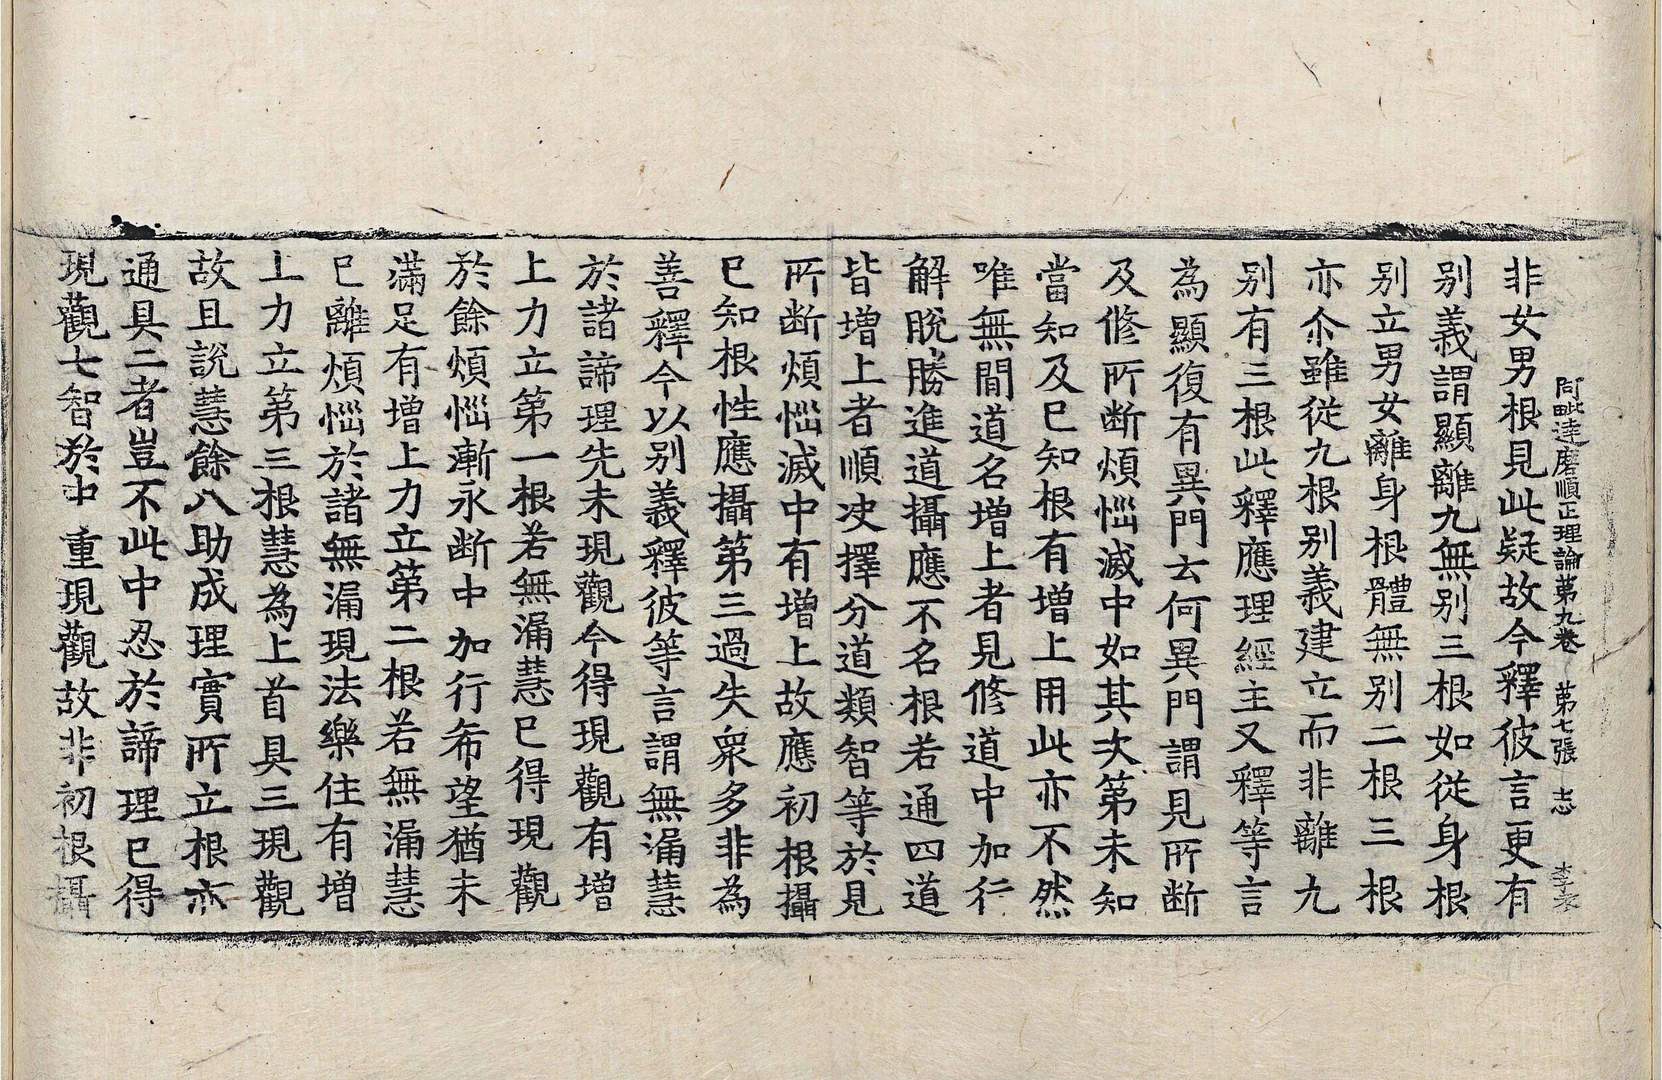 阿毗達磨順正理論第九卷 第七張 志
非女男根見此疑故今釋彼言更有
別義謂顯離九無別三根如從身根
別立男女離身根體無別二根三根
亦尒雖從九根別義建立而非離九
別有三根此釋應理經主又釋等言
為顯復有異門云何異門謂見所断
及修所断煩惱滅中如其次第未知
當知及已知根有增上用此亦不然
唯無間道名增上者見修道中加行
解脫勝進道攝應不名根若通四道
皆增上者順決擇分道類智等於見
所断煩惱滅中有增上故應初根攝
已知根性應攝第三過失衆多非為
善釋今以別義釋彼等言謂無漏慧
於諸諦理先未現觀今得現觀有增
上力立第一根若無漏慧已得現觀
於餘煩惱漸永断中加行希望猶未
滿足有增上力立第二根若無漏慧
已離煩惱於諸無漏現法樂住有增
上力立第三根慧為上首具三現觀
故且說慧餘八助成理實所立根亦
通具二者豈不此中忍於諦理已得
現觀七智於中重現觀故非初根攝